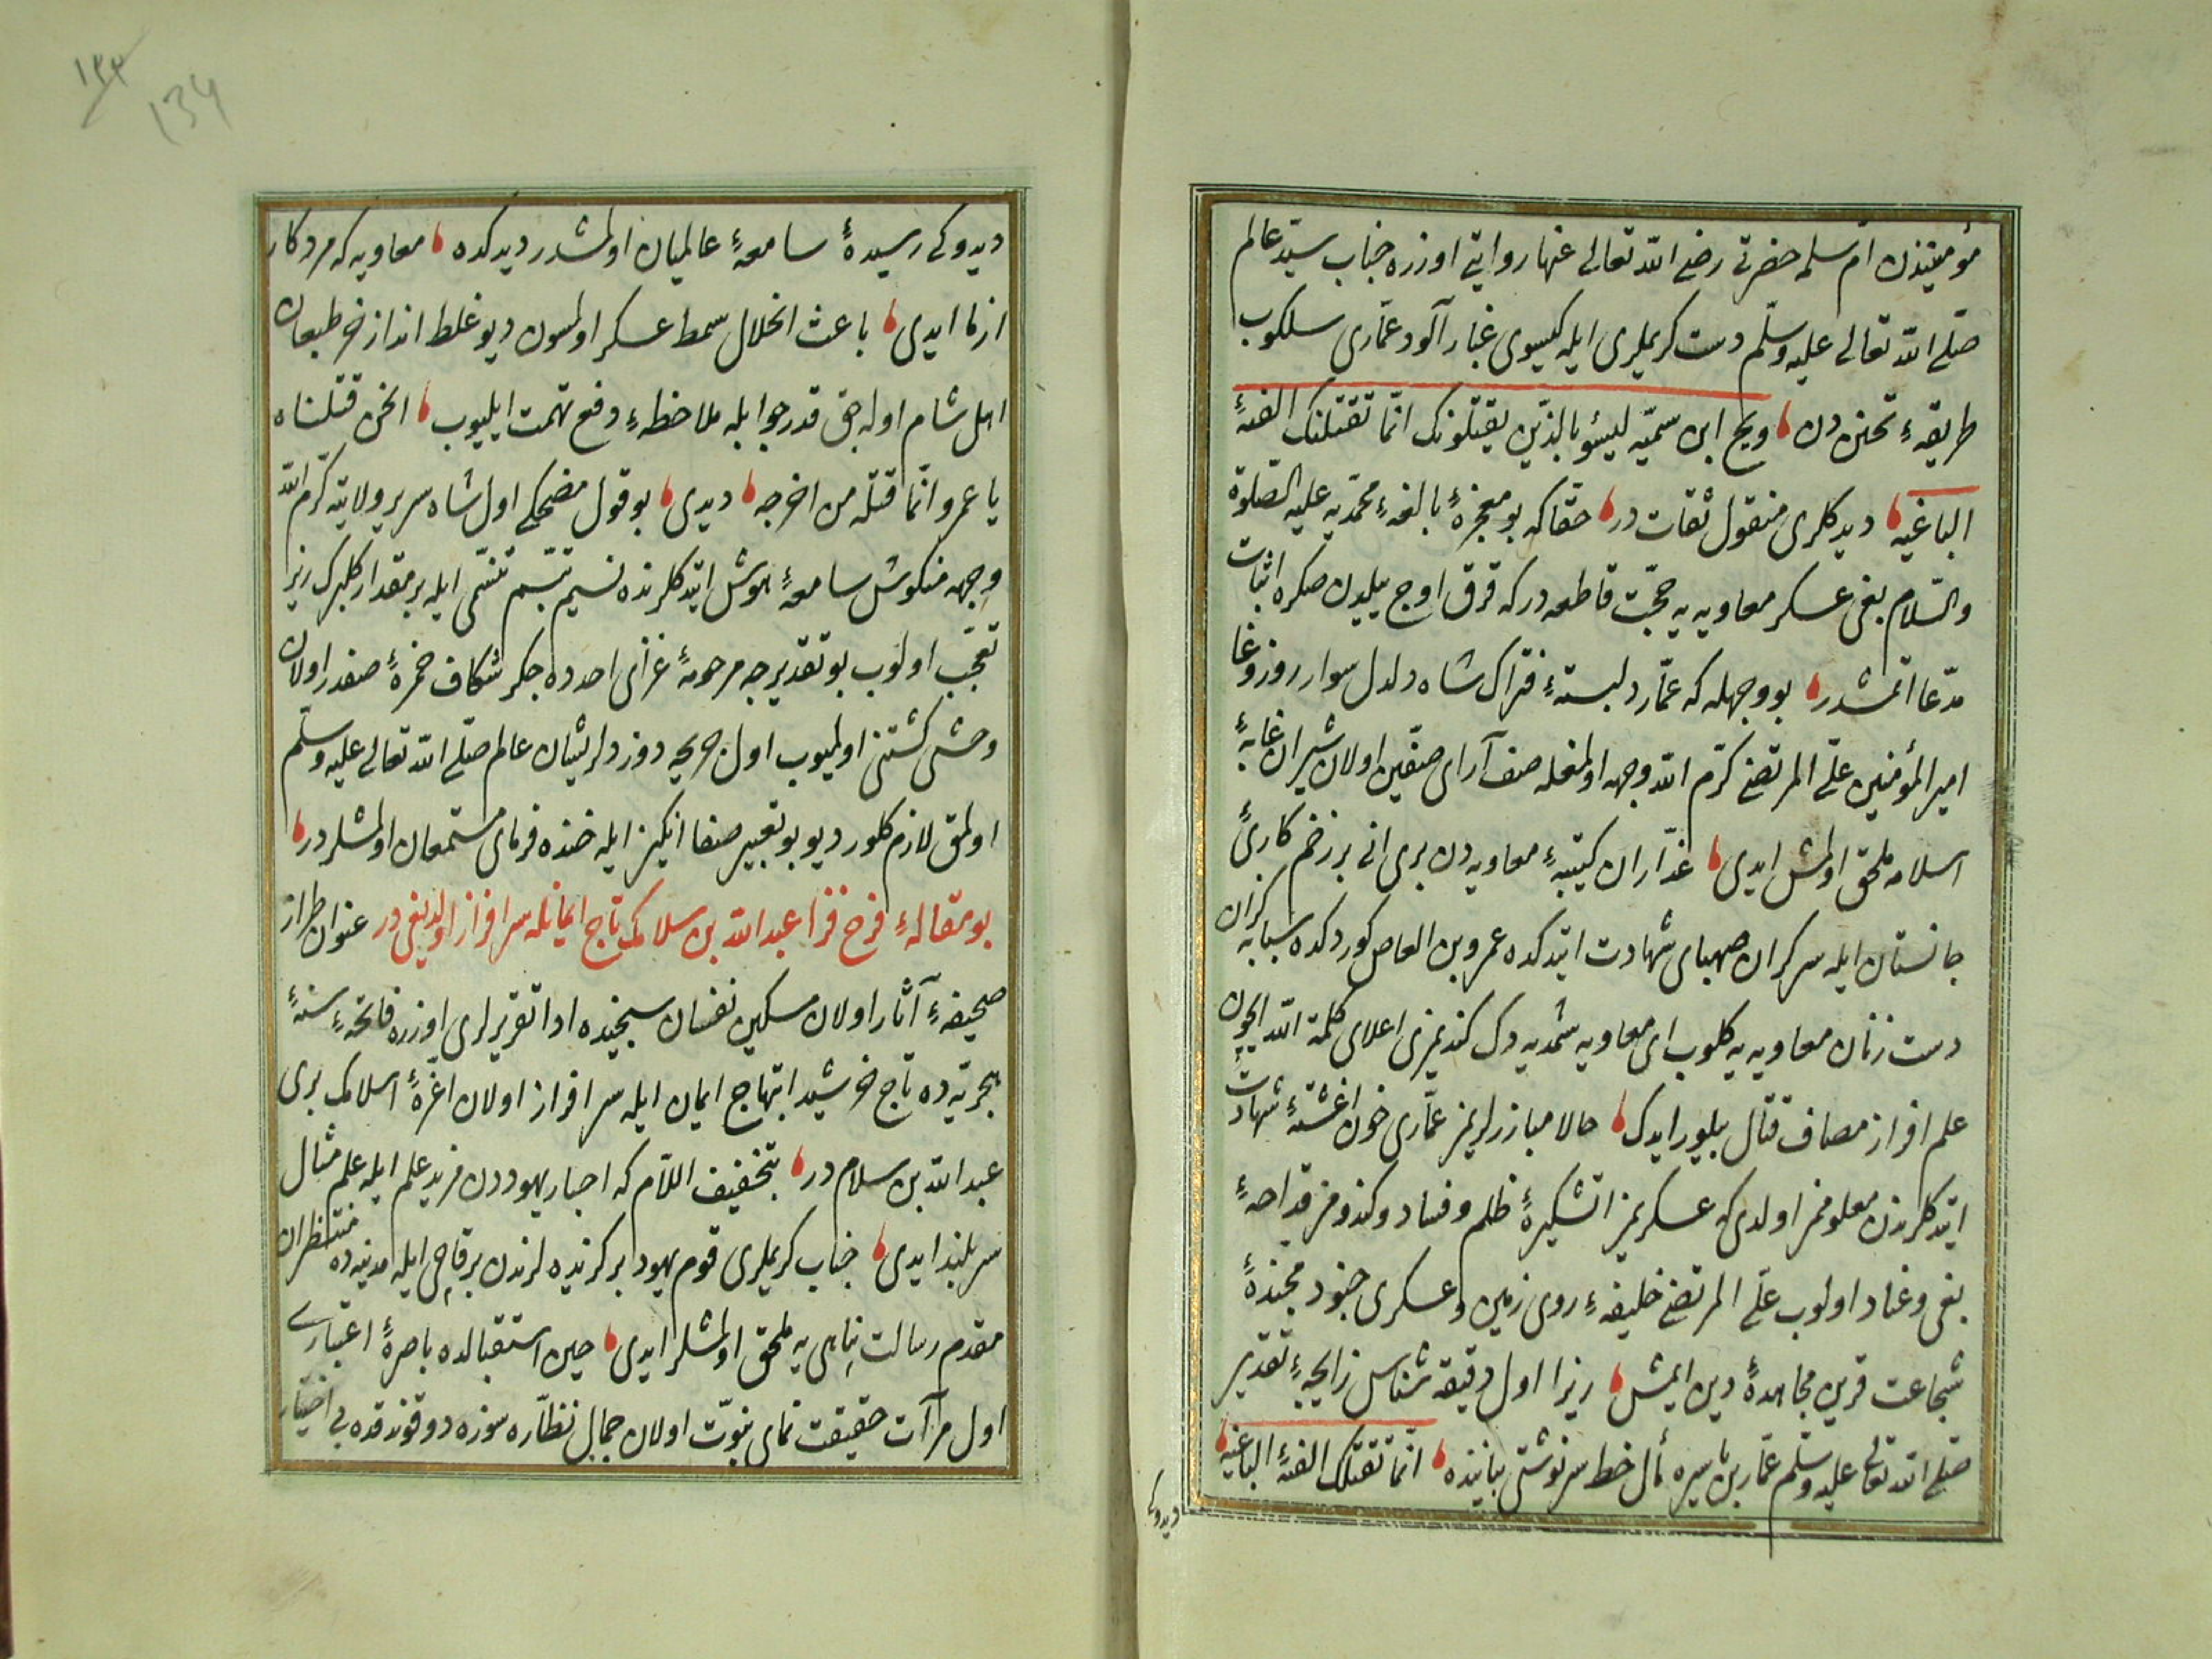 مؤمنیندن امّ سلمه حضرتی رضی الله تعالی عنها روایتی اوزره جناب سیّد عالم
صلّی الله تعالی علیه وسلّم دست کریملری ایله کیسوی غبار آلود عمّاری سلکوب
طریقهٔ تحنن دن ویح ابن سمیّه لیسوا بالذین یقتلونک انّما تقتلنک الفئهٔ
الباغیه دیدکلری منقول ثقات در حقّا که بو معجزهٔ بالغهٔ محمّدیه علیه الصّلوة
والسّلام بغی عسکر معاویه یه حجّت قاطعه در که قرق اوچ ییلدن صکره اثبات
مدّعا اتمشدر بو وجهله که عمّار دلبستهٔ فتراک شاه دلدل سوار روز وغا
امیر المؤمنین علیّ المرتضی کرّم الله وجهه اولمغله صف آرای صفّین اولان شیران غابهٔ
اسلامه ملحق اولمش ایدی غدّاران کتیبهٔ معاویه دن بری انی بر زخم کاریٔ
جانستان ایله سرکران صهبای شهادت ایتدکده عمرو بن العاص کوردکده سبابه کزان
دست زنان معاویه یه کلوب ای معاویه شمدیه دک کندیمزی اعلای کلمة الله ایچون
علم افراز مصاف قتال بیلور ایدک حالا مبارزلریمز عمّاری خون اغشتهٔ شهادت
ایتدکلرندن معلوممز اولدی که عسکریمز آتشکیرهٔ ظلم وفساد وکندومز قداحهٔ
بغی وعناد اولوب علی المرتضی خلیفهٔ روی زمین وعسکری جنود مجندهٔ
شجاعت قرین مجاهدهٔ دین ایمش زیرا اول دقیقه شناس زایجهٔ تقدیر
صلّی الله تعالی علیه وسلّم عمّار بن یاسره مأل خط سرنوشتی بیاننده انّما تقتلک الفئهٔ الباغیه
دیدوکی
دیدوکی رسیدهٔ سامعهٔ عالمیان اولمشدر دیدکده معاویه که مرد کار
ازما ایدی باعث انحلال سمط عسکر اولمسون دیو غلط انداز خر طبعان
اهل شام اوله جق قدر جوابله ملاحظهٔ دفع تهمت ایلیوب انحن قتلناه
یا عمرو انّما قتله من اخرجه دیدی بو قول مضحکی اول شاه سریر ولایته کرّم الله
وجهه منکوش سامعهٔ هوش ایتدکلرنده نسیم تبسّم تنسّمی ایله بر مقدار کلبرک ریز
تعجّب اولوب بو تقدیرجه مرحومهٔ غزای احدده جکر شکاف حمزهٔ صفدر اولان
وحشی کشتنی اولمیوب اول جریحه دوز دلریشان عالم صلّی الله تعالی علیه وسلّم
اولمق لازم کلور دیو بو تعبیر صفا انکیز ایله خنده فرمای مستمعان اولمشلردر
بو مقالهٔ فرخ فزا عبد الله بن سلامک تاج ایمانله سرافراز اولدیغی در عنوان طراز
صحیفهٔ آثار اولان مسکین نفسان سنجیده ادا تقریرلری اوزره فاتحهٔ سنهٔ
هجریّه ده تاج خرشید ابتهاج ایمان ایله سرافراز اولان اغرّهٔ اسلامک بری
عبد الله بن سلام در بتخفیف اللّام که احبار یهوددن مزید علم ایله علم مثال
سربلند ایدی جناب کریملری قوم یهود برکزیده لرندن بر قاچی ایله مدینه ده منتظران
مقدم رسالت پناهی یه ملحق اولمشلر ایدی حین استقبالده باصرهٔ اعتباری
اول مرآت حقیقت نمای نبوّت اولان جمال نظّاره سوزه دوقوندقده بی اختیار
١٣٣
134